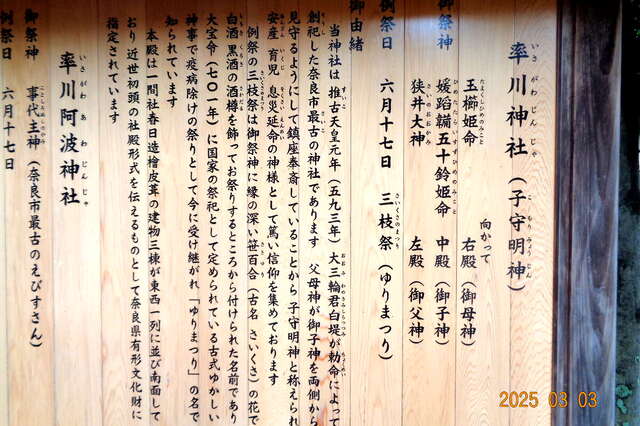 率川神社（子守明神）
いさがわじんじゃ
こもりみょうじん
向かって
玉櫛姫命
たまくしひめのみこと
右殿（御母神）
御祭神
媛蹈韛五十鈴姫命
ひめたたらいすずひめのみこと
中殿（御子神）
狭井大神
さいのおおかみ
左殿（御父神）
例祭日
六月十七日
三枝祭（ゆりまつり）
さいくさのまつり
御由緒
当神社は 推古天皇元年（五九三年）大三輪君白堤が勅命によって
創祀した奈良市最古の神社であります 父母神が御子神を両側から
見守るようにして鎮座奉斎していることから子守明神と称えられ
安産 育児 息災延命の神様として篤い信仰を集めております
例祭の三枝祭は御祭神に縁の深い笹百合（古名 さいくさ）の花で
白酒 黒酒の酒樽を飾ってお祭りするところから付けられた名前であり
大宝令（七〇一年）に国家の祭祀として定められている古式ゆかしい
神事で疫病除けの祭りとして今に受け継がれ「ゆりまつり」の名で
知られています
本殿は一間社春日造檜皮葺の建物三棟が東西一列に並び南面して
おり 近世初頭の社殿形式を伝えるものとして奈良県有形文化財に
指定されています
率川阿波神社
いさがわあわじんじゃ
御祭神
事代主神（奈良市最古のえびすさん）
ことしろぬしのかみ
例祭日
六月十七日
2025 03 03